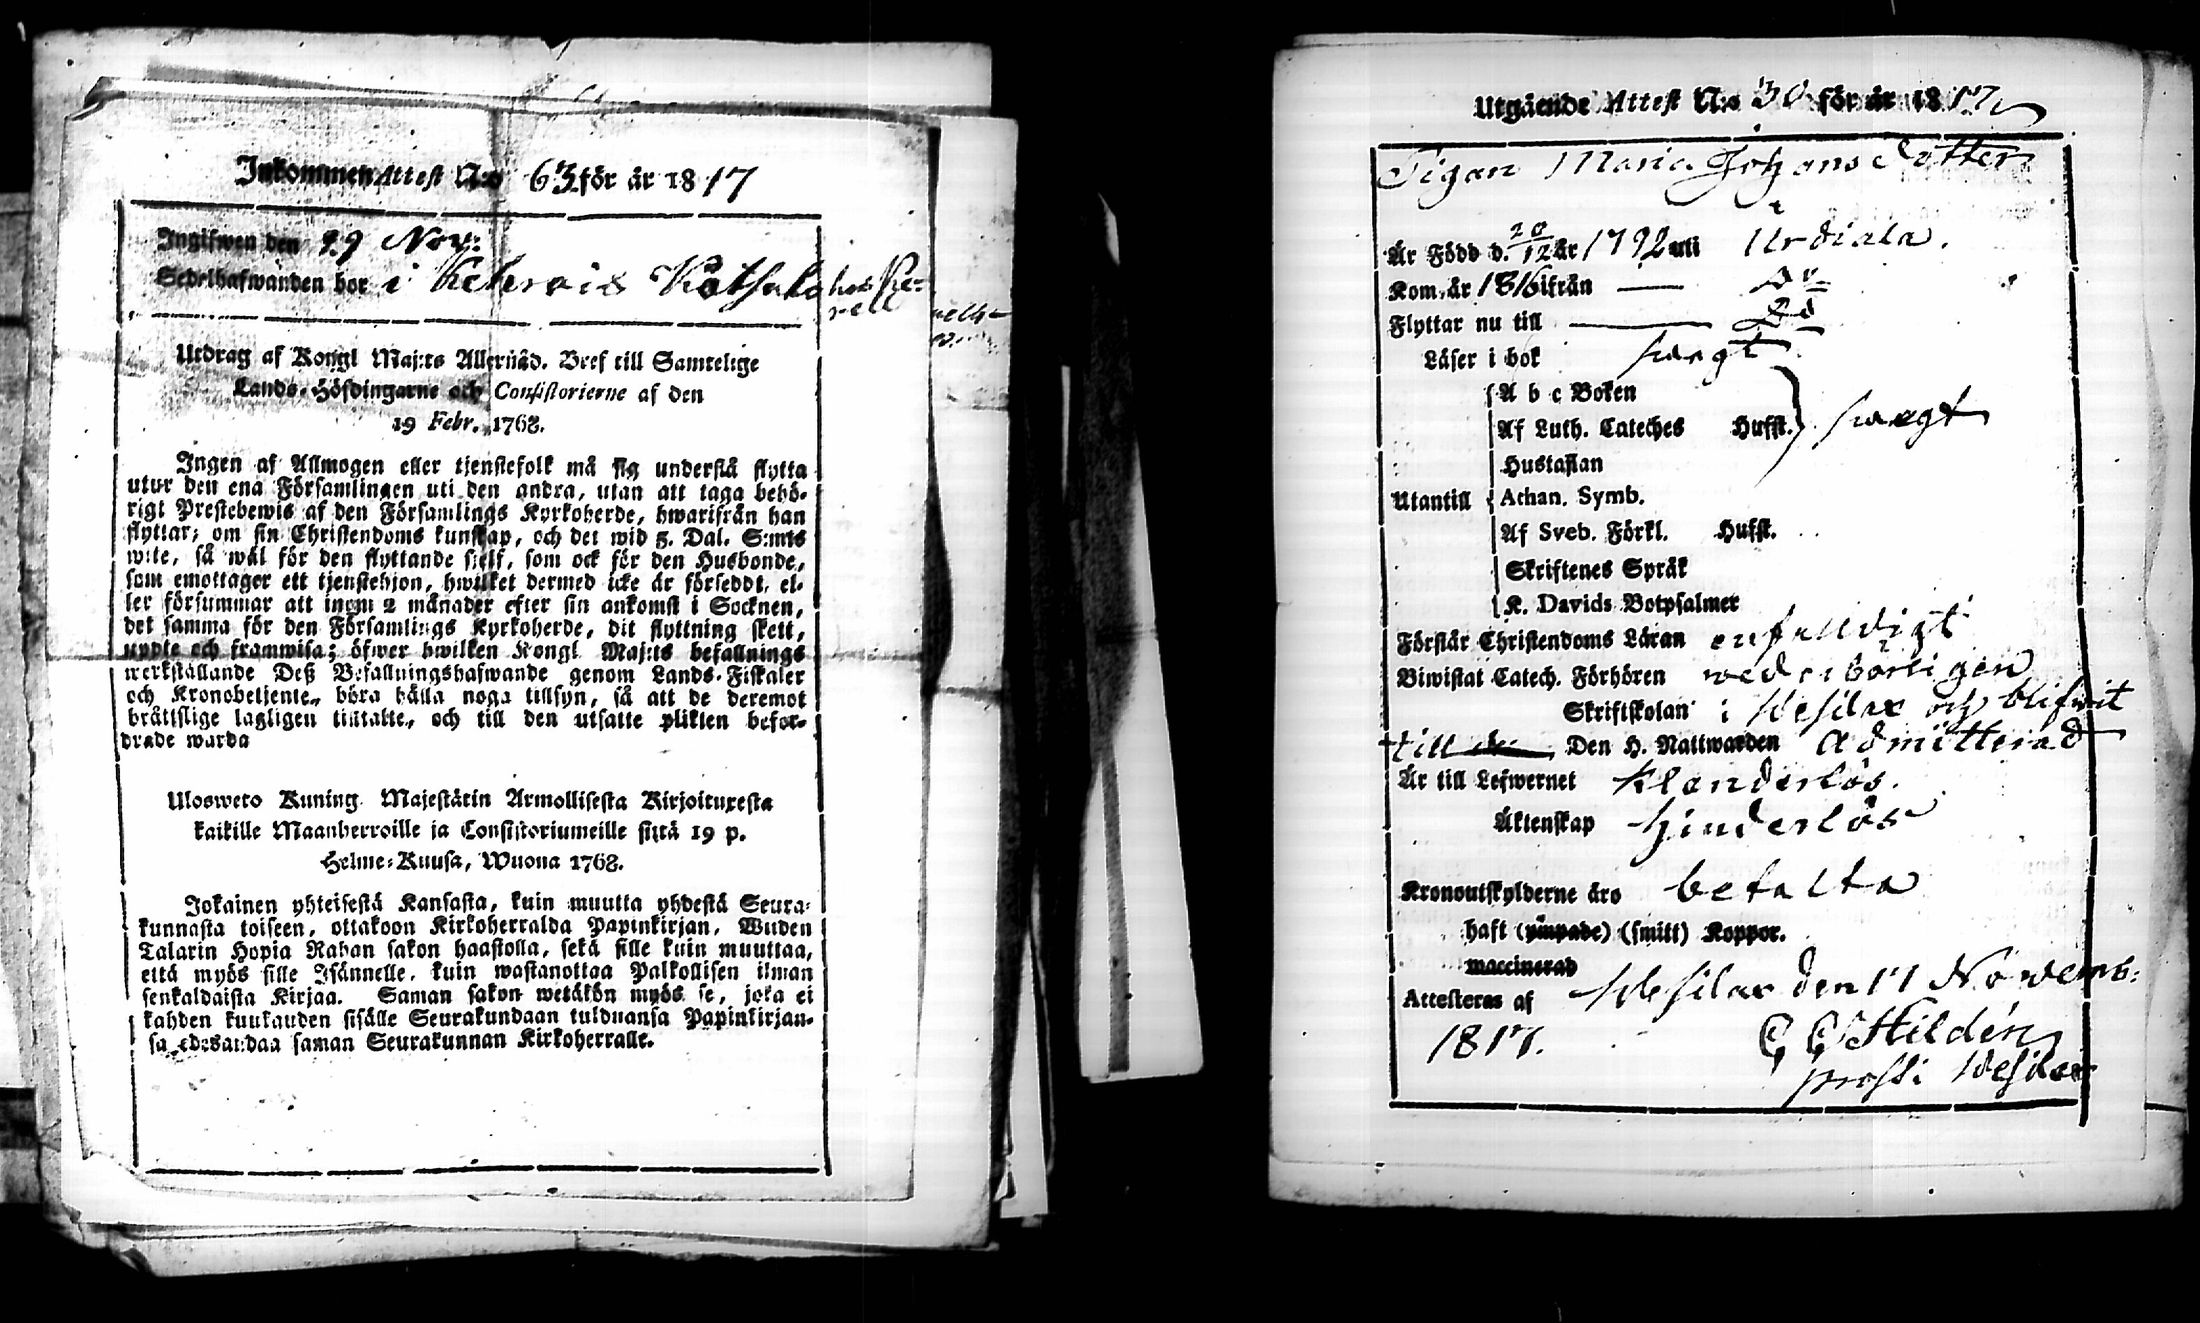 Inkommen Attest N:o 63 för år 1817
Ingifwen den 29 Nov:
Sedelhafwanden bor i Kehrois Kötsala hos Ke=
rell
Utdrag af Kongl Maj:ts Allernåd. Bref till Samtelige
Lands-Höfdingarne och Consistorierne af den
19 Febr. 1768.
Ingen af Allmogen eller tjenstefolk må sig understå flytta
utur den ena Församlingen uti den andra, utan att taga behö-
rigt Prestebewis af den Församlings Kyrkoherde, hwarifrån han
flyttar; om sin Christendoms kunskap, och det wid 5. Dal. S:mts
wite, så wäl för den flyttande sjelf, som ock för den Husbonde,
som emottager ett tjenstehjon, hwilket dermed icke är försedt, el-
ler försummar att inom 2 månader efter sin ankomst i Socknen,
det samma för den Församlings Kyrkoherde, dit flyttning skett,
uppte och framwisa; öfwer hwilken Kongl Maj:ts befallnings
werkställande Deß Befallningshafwande genom Lands-Fiskaler
och Kronobetjente, böra hålla noga tillsyn, så att de deremot
bråttslige lagligen tilltalte, och till den utsatte plikten befor-
drade warda
Ulosweto Kuning. Majestätin Armollisesta Kirjoituxesta
kaikille Maanherroille ja Consistoriumeille siitä 19 p.
Helme-Kuusa, Wuona 1768.
Jokainen yhteisestä Kansasta, kuin muutta yhdestä Seura-
kunnasta toiseen, ottakoon Kirkoherralda Papinkirjan, Wiiden
Talarin Hopia Rahan sakon haastolla, sekä sille kuin muuttaa,
että myös sille Isännelle, kuin wastanottaa Palkollisen ilman
senkaldaista Kirjaa. Saman sakon wetäkön myös se, joka ei
kahden kuukauden sisälle Seurakundaan tulduansa Papinkirjan-
sa edesandaa saman Seurakunnan Kirkoherralle.
Utgående Attest N:o 30 för år 1817
Pigan Maria Johans Dotter
Är Född d. 20/12 år 1792 uti Urdiala.
Kom år 1816 ifrån — Do
Flyttar nu till — Do
Läser i bok swagt
A b c Boken
Af Luth. Cateches Hufst. swagt
Hustaflan
Utantill Athan. Symb.
Af Sveb. Förkl. Hufst.
Skriftenes Språk
K. Davids Botpsalmer
Förstår Christendoms Läran enfaldigt
Biwistat Catech. Förhören wederbörligen
Skriftskolan i Wesilax och blifwit
till Den H. Nattwarden admitterad
Är till Lefwernet klanderlös.
Äktenskap hinderlös
Kronoutskylderne äro betalta
haft (ympade) (smitt) Koppor.
waccinerad
Attesteras af Wesilax den 17 Novemb:
1817. C G Hildén
prost i Wesilax